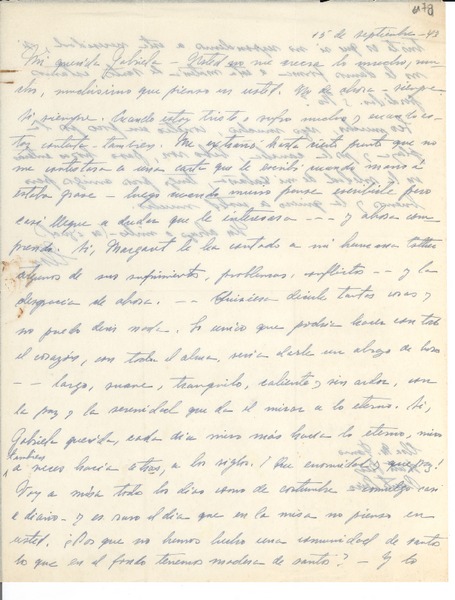 15 de septiembre - 43
Mi querida Gabriela - Usted no me creerá lo mucho, mu-
cho, muchísimo que pienso en usted. No de ahora - siempre
Sí, siempre. Cuando estoy triste y sufro mucho y cuando es-
toy contenta - también. Me extrañó hasta cierto punto que no
me contestara a una carta que le escribí cuando mi mamá
estaba grave - luego cuando murió pensé escribirle pero
casi llegué a dudar que le interesara --- y ahora com-
prendo. Sí, Margaret le ha contado a mi hermana Esther
algunos de sus sufrimientos, problemas, conflictos -- y la
desgracia de ahora. -- Quisiera decirle tantas cosas y
no puedo decir nada. Lo único que podría hacer con todo
el corazón, con toda el alma, sería darle un abrazo de
-- largo, suave, tranquilo, caliente y sin ardor, con
la paz y la serenidad que da el mirar a lo eterno. Sí,
Gabriela querida, cada día miro más hacia lo eterno, miro
también
a veces hacia atrás, a los siglos. ¡Qué enormidad y qué paz!
Voy a misa todos los días como de costumbre y comulgo casi
a diario - y es raro el día que en la misa no pienso en
usted. ¿Por qué no hemos hecho una comunidad de santos
los que en el fondo tenemos madera de santo? - Y lo